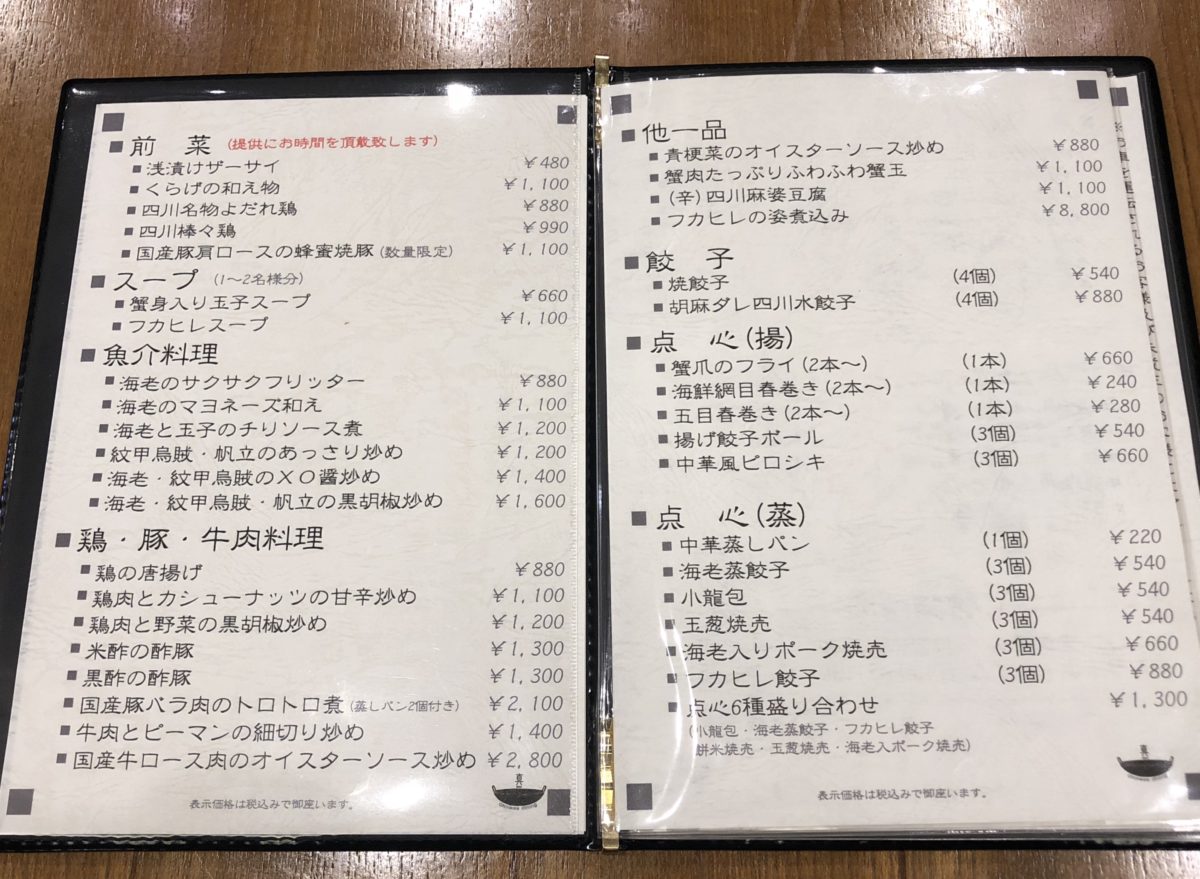 ■前 菜 (提供にお時間を頂戴致します)
■浅漬けザーサイ ￥480
■くらげの和え物 ￥1,100
■四川名物よだれ鶏 ￥880
■四川棒々鶏 ￥990
■国産豚肩ロースの蜂蜜焼豚(数量限定) ￥1,100
■スープ (1～2名様分)
■蟹身入り玉子スープ ￥660
■フカヒレスープ ￥1,100
■魚介料理
■海老のサクサクフリッター ￥880
■海老のマヨネーズ和え ￥1,100
■海老と玉子のチリソース煮 ￥1,200
■紋甲烏賊・帆立のあっさり炒め ￥1,200
■海老・紋甲烏賊のXO醤炒め ￥1,400
■海老・紋甲烏賊・帆立の黒胡椒炒め ￥1,600
■鶏・豚・牛肉料理
■鶏の唐揚げ ￥880
■鶏肉とカシューナッツの甘辛炒め ￥1,100
■鶏肉と野菜の黒胡椒炒め ￥1,200
■米酢の酢豚 ￥1,300
■黒酢の酢豚 ￥1,300
■国産豚バラ肉のトロトロ煮(蒸しパン2個付き) ￥2,100
■牛肉とピーマンの細切り炒め ￥1,400
■国産牛ロース肉のオイスターソース炒め ￥2,800
表示価格は税込みで御座います。
■他一品
■青梗菜のオイスターソース炒め ￥880
■蟹肉たっぷりふわふわ蟹玉 ￥1,100
■(辛)四川麻婆豆腐 ￥1,100
■フカヒレの姿煮込み ￥8,800
■餃 子
■焼餃子 (4個) ￥540
■胡麻ダレ四川水餃子 (4個) ￥880
■点 心(揚)
■蟹爪のフライ(2本～) (1本) ￥660
■海鮮網目春巻き(2本～) (1本) ￥240
■五目春巻き(2本～) (1本) ￥280
■揚げ餃子ボール (3個) ￥540
■中華風ピロシキ (3個) ￥660
■点 心(蒸)
■中華蒸しパン (1個) ￥220
■海老蒸餃子 (3個) ￥540
■小龍包 (3個) ￥540
■玉葱焼売 (3個) ￥540
■海老入りポーク焼売 (3個) ￥660
■フカヒレ餃子 (3個) ￥880
■点心6種盛り合わせ ￥1,300
(小龍包・海老蒸餃子・フカヒレ餃子
餅米焼売・玉葱焼売・海老入ポーク焼売)
表示価格は税込みで御座います。